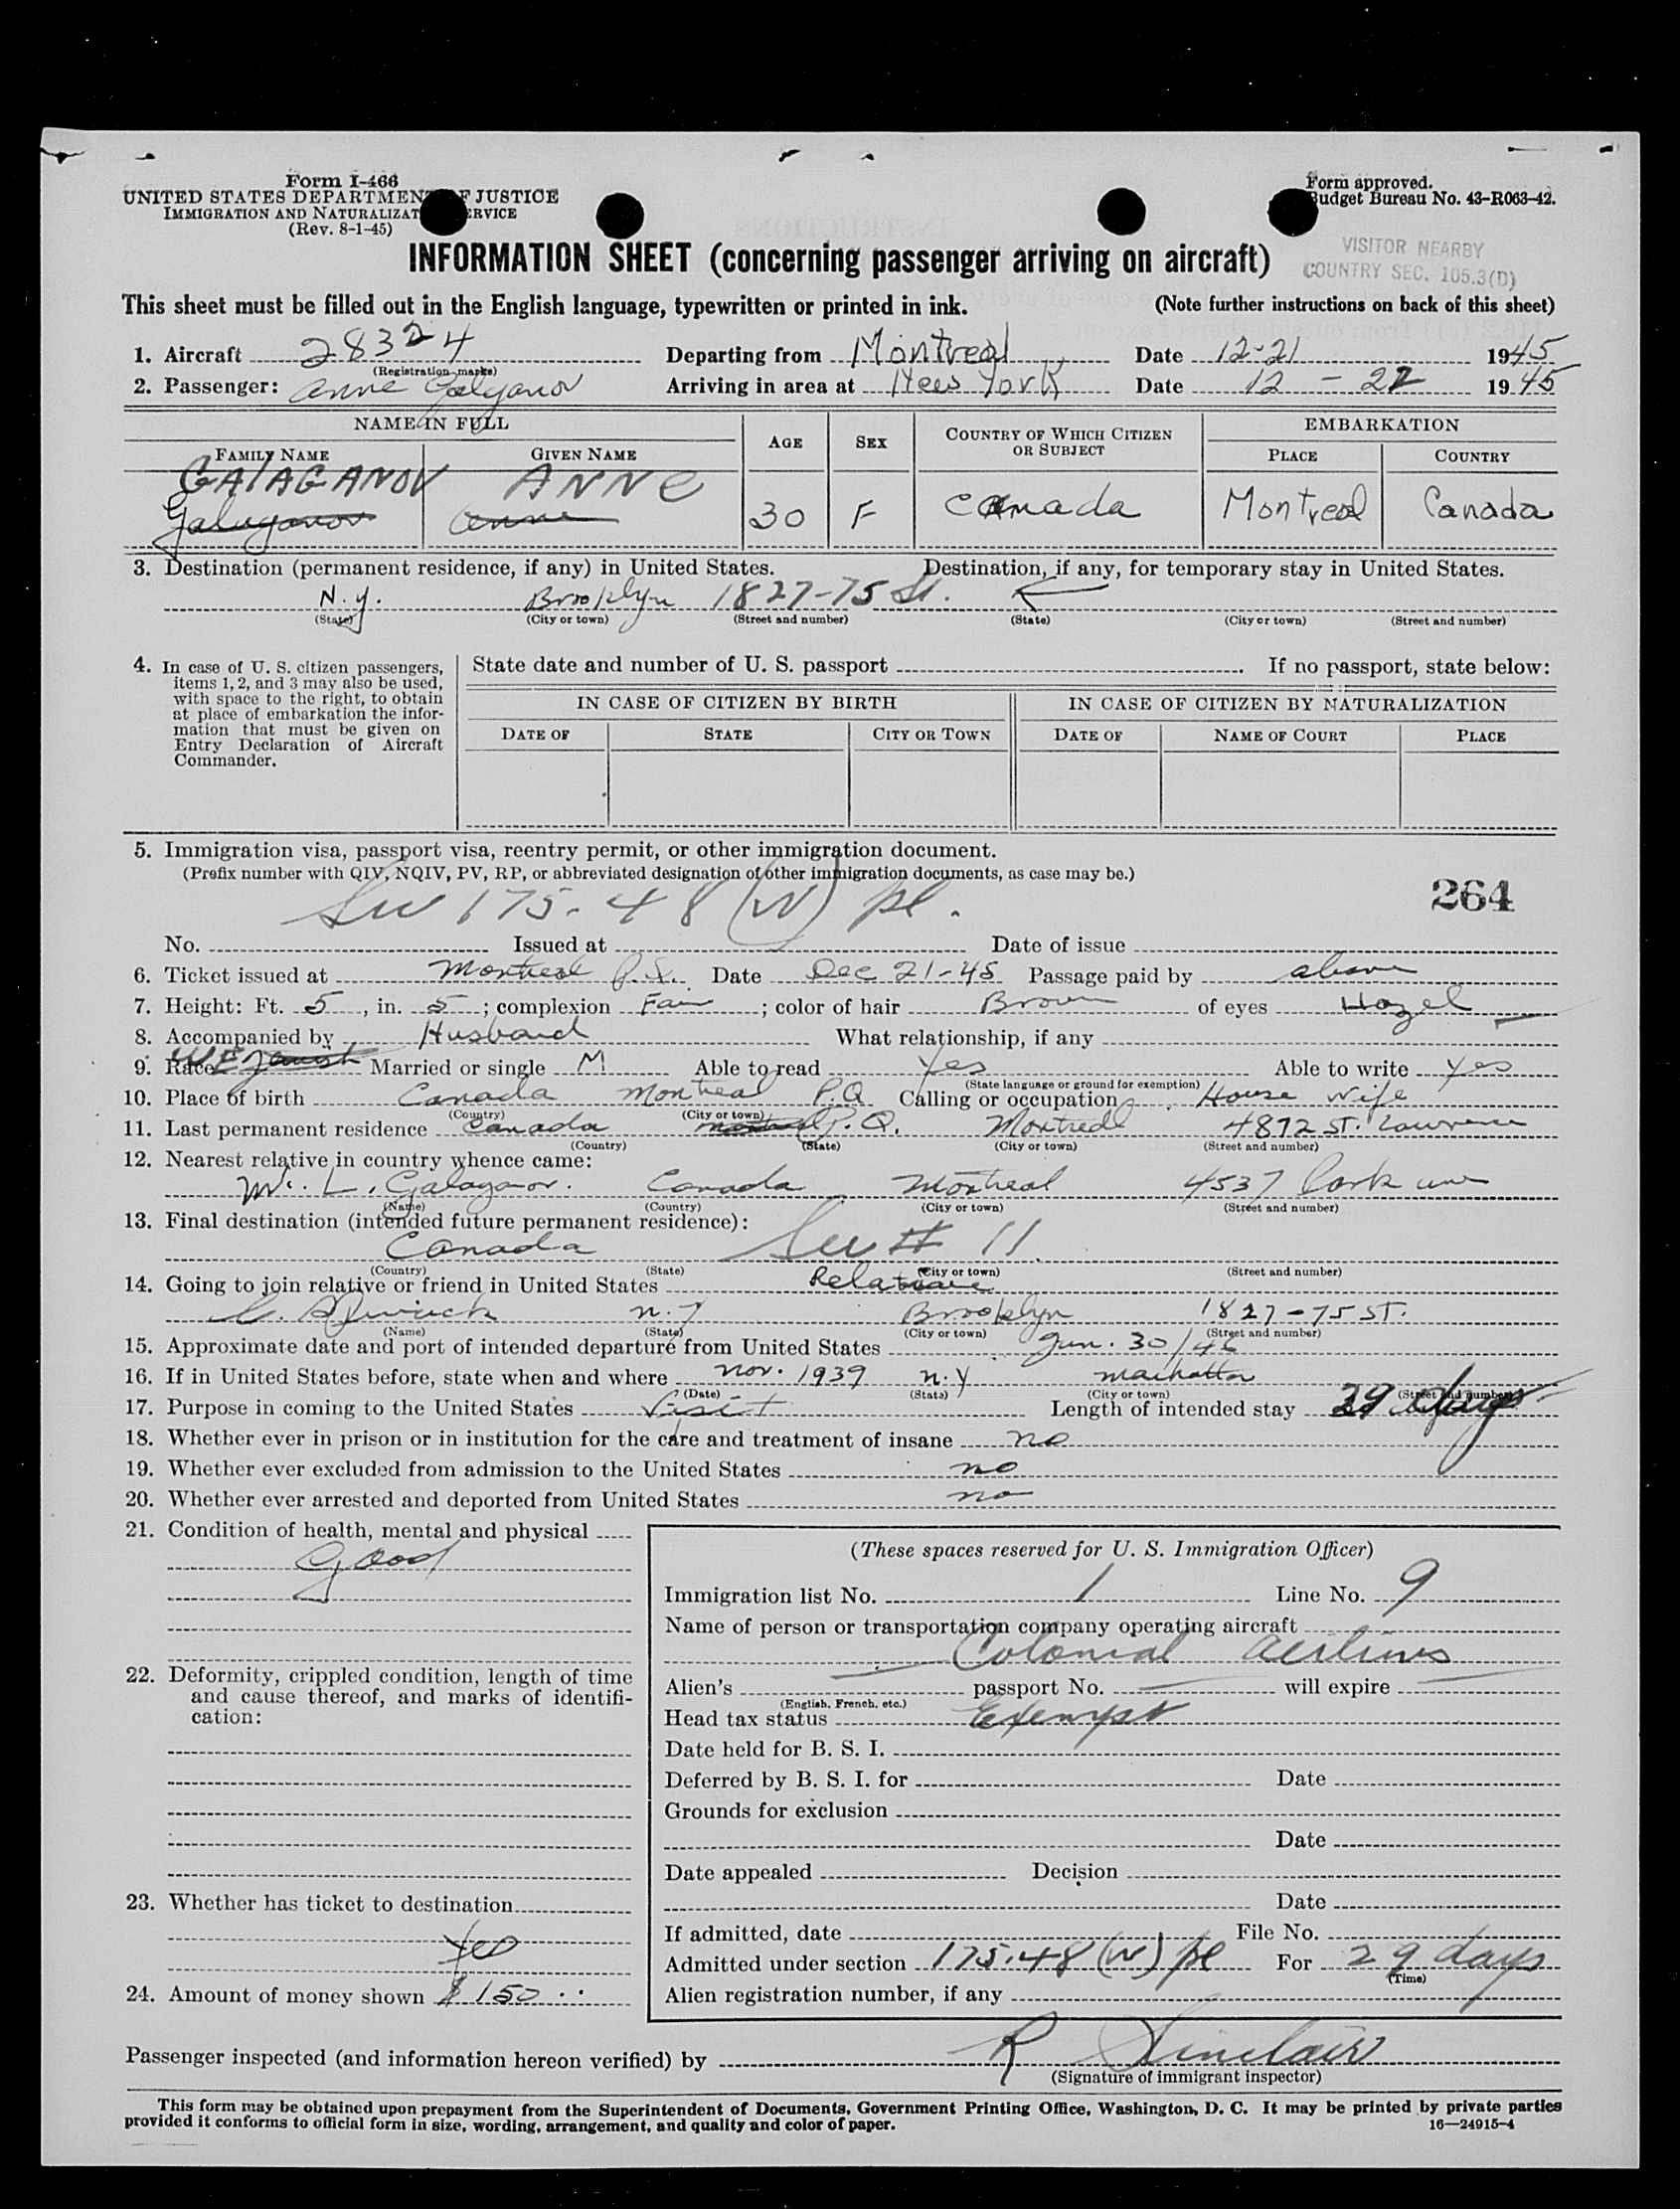 Form I-466
UNITED STATES DEPARTMENT OF JUSTICE
IMMIGRATION AND NATURALIZATION SERVICE
(Rev. 8-1-45)
Form approved.
Budget Bureau No. 43-R063-42.
INFORMATION SHEET (concerning passenger arriving on aircraft)
VISITOR NEARBY
COUNTRY SEC. 105.3(D)
This sheet must be filled out in the English language, typewritten or printed in ink. (Note further instructions on back of this sheet)
1. Aircraft 28324 Departing from Montreal Date 12-21 1945
(Registration marks)
2. Passenger: Anne Galganov Arriving in area at New York Date 12 - 22 1945
NAME IN FULL AGE SEX COUNTRY OF WHICH CITIZEN OR SUBJECT EMBARKATION
FAMILY NAME GIVEN NAME PLACE COUNTRY
GALAGANOV ANNE
Galaganov Anne 30 F Canada Montreal Canada
3. Destination (permanent residence, if any) in United States. Destination, if any, for temporary stay in United States.
N.y. Brooklyn 1827-75 St.
(State) (City or town) (Street and number) (State) (City or town) (Street and number)
4. In case of U. S. citizen passengers, items 1, 2, and 3 may also be used, with space to the right, to obtain at place of embarkation the information that must be given on Entry Declaration of Aircraft Commander.
State date and number of U. S. passport . If no passport, state below:
IN CASE OF CITIZEN BY BIRTH IN CASE OF CITIZEN BY NATURALIZATION
DATE OF STATE CITY OR TOWN DATE OF NAME OF COURT PLACE
5. Immigration visa, passport visa, reentry permit, or other immigration document.
(Prefix number with QIV, NQIV, PV, RP, or abbreviated designation of other immigration documents, as case may be.)
264
175.48 (W) pl.
No. Issued at Date of issue
6. Ticket issued at Montreal P.Q. Date Dec 21-45 Passage paid by above
7. Height: Ft. 5, in. 5; complexion Fair; color of hair Brown of eyes Hazel
8. Accompanied by Husband What relationship, if any
9. Race Married or single M Able to read Yes Able to write Yes
(State language or ground for exemption)
10. Place of birth Canada Montreal P.Q Calling or occupation House wife
(Country) (City or town)
11. Last permanent residence Canada P.Q. Montreal 4872 ST. Lawrence
(Country) (State) (City or town) (Street and number)
12. Nearest relative in country whence came:
Mr. L. Galaganov. Canada Montreal 4537 Park ave
(Name) (Country) (City or town) (Street and number)
13. Final destination (intended future permanent residence):
Canada See # 11.
(Country) (State) (City or town) (Street and number)
14. Going to join relative or friend in United States Relative
n.y Brooklyn 1827-75 ST.
(Name) (State) (City or town) (Street and number)
15. Approximate date and port of intended departure from United States Jan. 30/46
16. If in United States before, state when and where nov. 1939 n.y manhatton
(Date) (State) (City or town) (Street and number)
17. Purpose in coming to the United States Visit Length of intended stay 29 days
18. Whether ever in prison or in institution for the care and treatment of insane no
19. Whether ever excluded from admission to the United States no
20. Whether ever arrested and deported from United States no
21. Condition of health, mental and physical
Good
22. Deformity, crippled condition, length of time and cause thereof, and marks of identification:
23. Whether has ticket to destination
Yes
24. Amount of money shown $150..
(These spaces reserved for U. S. Immigration Officer)
Immigration list No. 1 Line No. 9
Name of person or transportation company operating aircraft
Colonial airlines
Alien's passport No. will expire
(English, French, etc.)
Head tax status Exempt
Date held for B. S. I.
Deferred by B. S. I. for Date
Grounds for exclusion
Date
Date appealed Decision
Date
If admitted, date File No.
Admitted under section 175.48 (W) pl For 29 days
(Time)
Alien registration number, if any
Passenger inspected (and information hereon verified) by R Sinclair
(Signature of immigrant inspector)
This form may be obtained upon prepayment from the Superintendent of Documents, Government Printing Office, Washington, D. C. It may be printed by private parties
provided it conforms to official form in size, wording, arrangement, and quality and color of paper. 16—24915-4